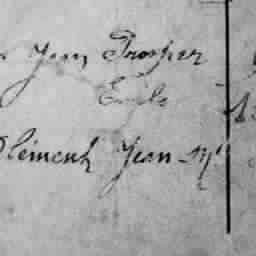 Jean Prosper
Emile
Clément Jean M